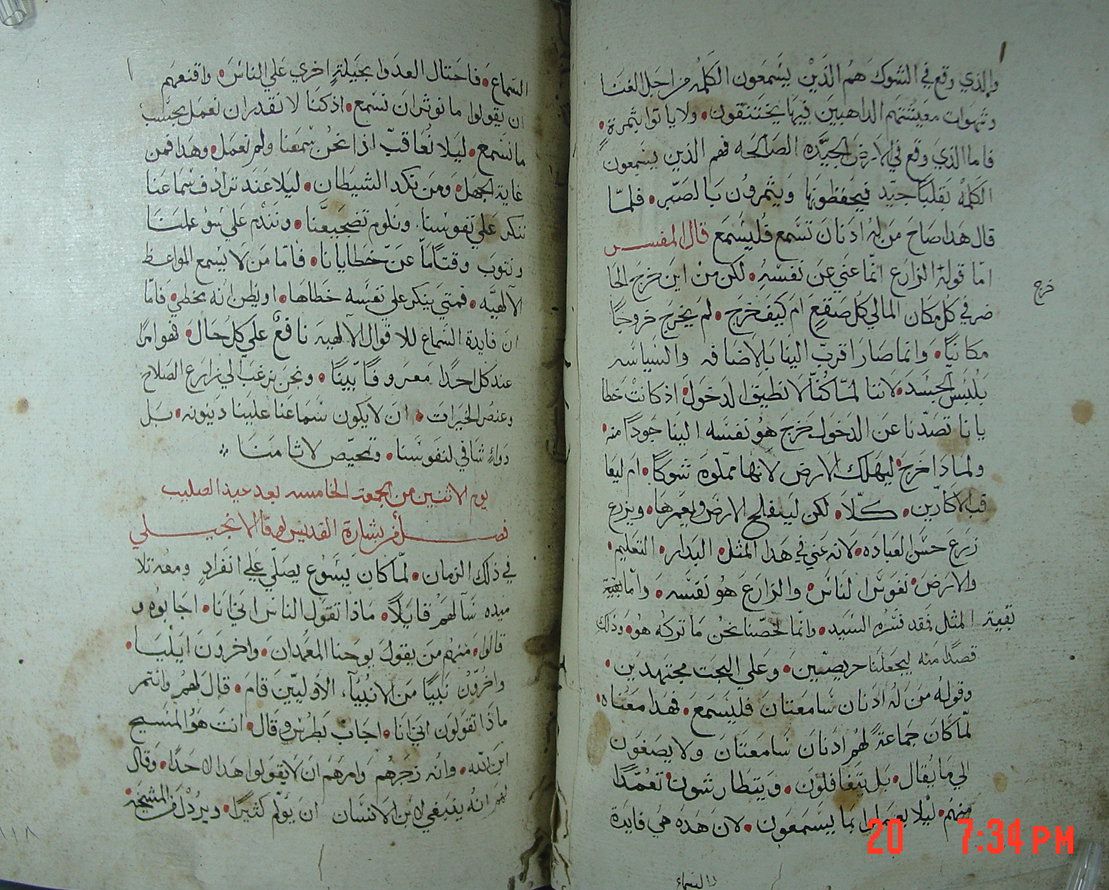 والذي وقع في الشوك هم الذين يسمعون الكلمه من اجل الغنا
وشهوات معيشتهم الذاهبين فيها يختنقون • ولا ياتوا بثمرة •
فاما الذي وقع في الارض الجيده الصالحه فهم الذين يسمعون
الكلمه بقلب جيد فيحفظونها ويثمرون بالصبر • فلما
قال هذا صاح من له اذنان تسمع فليسمع قال المفسر
اما قوله الزارع انما عني عن نفسه • لكن من اين خرج الحا
خرج
ضر في كل مكان المالي كل صقع ام كيف خرج • لم يخرج خروجا
مكانيا • وانما صار اقرب الينا بالاضافه والسياسه
بلبس الجسد • لاننا لما كنا لا نطيق الدخول • اذ كانت خطا
يانا تصدنا عن الدخول • خرج هو نفسه الينا جودا منه •
ولماذا خرج • ليهلك الارض لانها مملوة شوكا • ام ليعا
قب الاكارين • كلا • لكن ليفلح الارض ويعمرها • ويزرع
زرع حسن العباده • لانه عني في هذا المثل • البدار • التعليم •
والارض • نفوس الناس • والزارع هو نفسه • واما بقية
بقية المثل فقد فسره السيد • وانما لحصنا نحن ما تركه هو • وذلك
قصدا منه ليجعلنا حريصين • وعلي البحث مجتهدين •
وقوله من له اذنان سامعتان فليسمع • فهذا معناه •
لما كان جماعة لهم اذنان سامعتان ولا يصغون
الي ما يقال • بل يتغافلون • ويتطارشون تعمدا
منهم • ليلا يعملوا بما يسمعون • لان هذه هي فايدة
السماع • فاحتال العدوا بحيلة اخري علي الناس • واقنعهم
ان يقولوا ما نوثر ان نسمع • اذ كنا لا نقدر ان نعمل بحسب
ما نسمع • ليلا نعاقب اذا نحن سمعنا ولم نعمل • وهذا فمن
غاية الجهل • ومن نكد الشيطان • ليلا عند ترادف سماعنا
ننكر علي نفوسنا ونلوم تضجيعنا • ونندم علي سو عملنا
ونتوب وقتا ما عن خطايانا • فاما من لا يسمع المواعظ
الالهيه • فمتي ينكر علي نفسه خطاها • او يظن انه يخطي • فاما
ان فايدة السماع للاقوال الالهية نافع علي كل حال • فهو امرا
عند كل احدا معروفا بينا • ونحن نرغب الي زارع الصلاح
وعنصر الخيرات • ان لا يكون سماعنا علينا دينونه • بل
دواء شافي لنفوسنا • وتمحيص لاثامنا
يوم الاثنين من الجمعة الخامسه بعد عيد الصليب
فصل من بشارة القديس لوقا الانجيلي
في ذلك الزمان • لما كان يسوع يصلي علي انفراد ومعه تلا
ميذه سالهم قايلا • ماذا تقول الناس اني انا • اجابوه و
قالوا • منهم من يقول يوحنا المعمدان • واخرون ايليا •
واخرون نبيا من الانبياء الاوليين قام • قال لهم وانتم
ماذا تقولون اني انا • اجاب بطرس وقال • انت هو المسيح
ابن الله • وانه زجرهم وامرهم ان لا يقولوا هذا لاحدا • وقال
لهم انه ينبغي لابن الانسان ان يولم كثيرا • ويرذل من المشيخة
20 7:34 PM